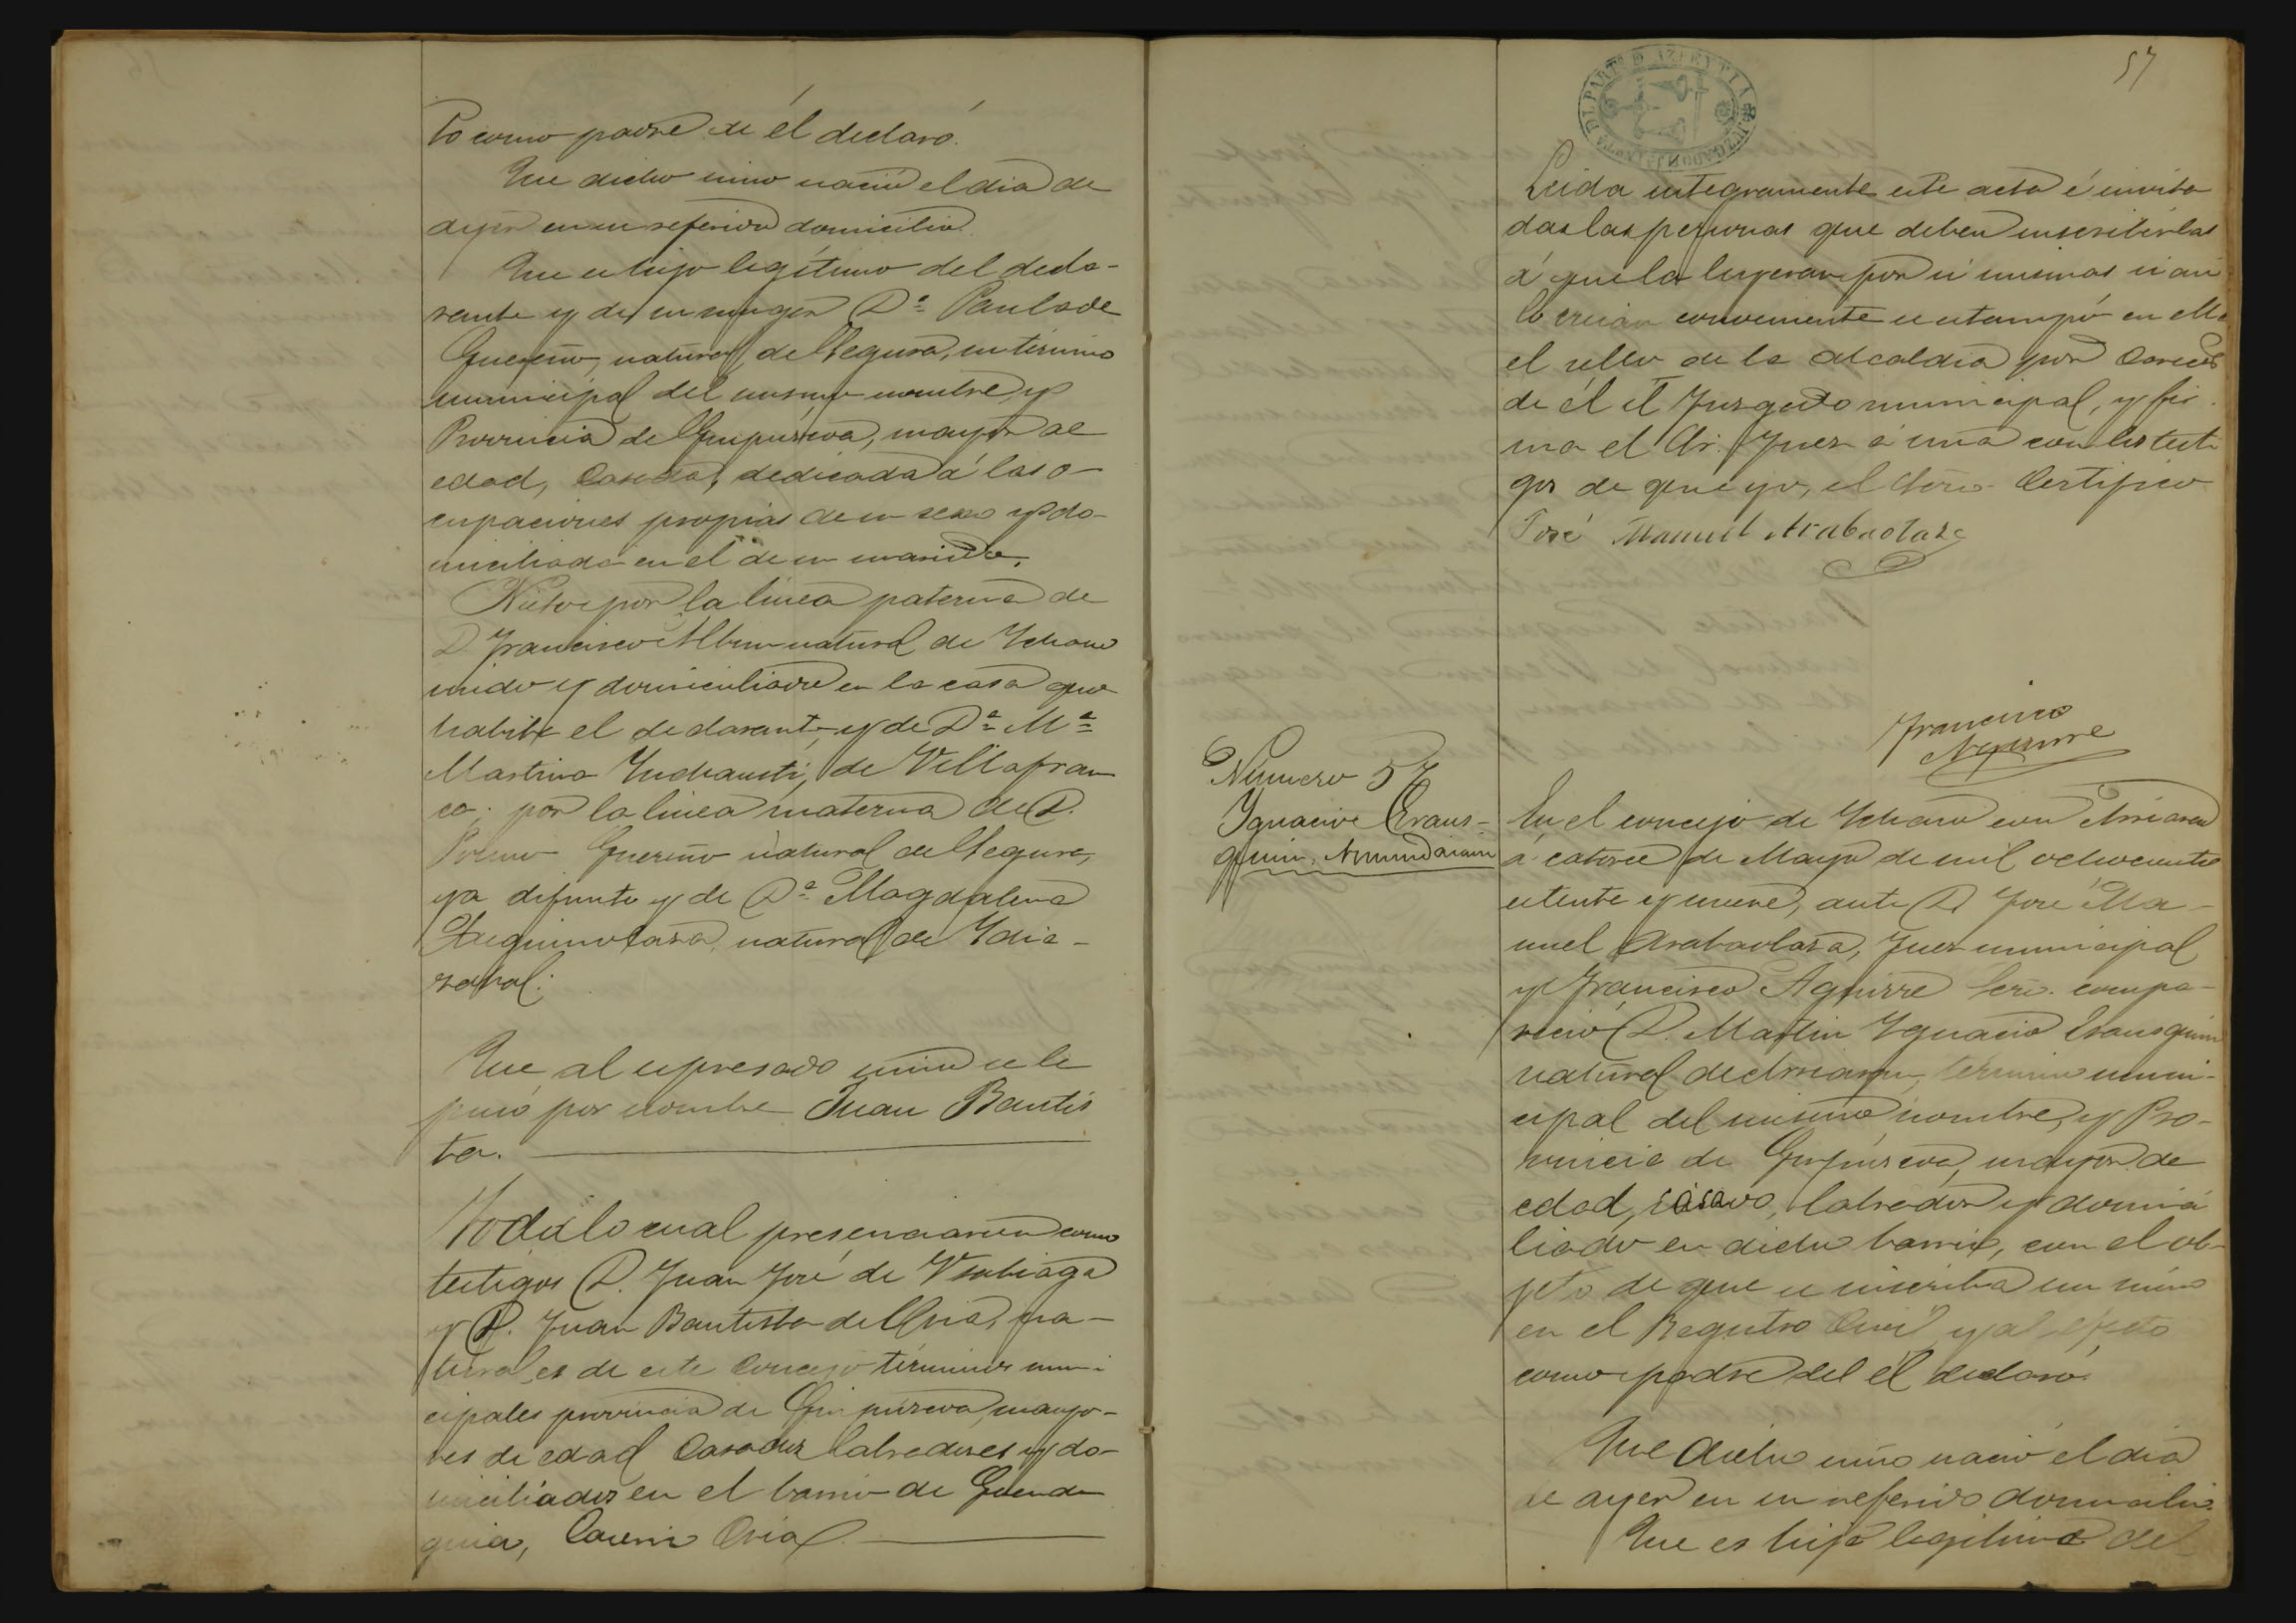 to como padre de él declaró.
Que dicho niño nació el dia de
ayer en su referido domicilio.
Que es hijo legítimo del decla-
rante y de su muger Dª Paula de
Guereño, natural de Segura, en término
municipal del mismo nombre, y
Provincia de Guipúzcoa, mayor de
edad, Casada, dedicada á las o-
cupaciones propias de su sexo y do-
miciliada en el de su marido.
Nieto por la linea paterna de
D. Francisco natural de Ychaso
y domiciliado en la casa que
habita el declarante, y de Dª Mª
Martina Ynchausti, de Villafran
ca; por la linea materna de D.
Guereño natural de Segura,
ya difunto y de Dª Magdalena
natural de Ydia-
zabal.
Que al espresado niño se le
puso por nombre Juan Bautis
ta.
Todo lo cual presenciaron como
testigos D. Juan José de
y D. Juan Bautista de Oria, na-
turales de este Concejo términos muni
cipales provincia de Guipúzcoa, mayo-
res de edad Casados labradores y do-
miciliados en el barrio de
Oria.
57
JUZGADO MUNICIPAL DEL PART. DE AZPEYTIA
Leida integramente este acta é invita
das las personas que deben inscribirlas
á que la leyeran por si mismas si asi
lo creian conveniente se estampó en ella
el sello de la Alcaldia por Carecer
de él el Juzgado municipal, y fir
ma el Sr. Juez á una con los testi
gos de que yo, el Srio. Certifico
José Manuel Arabaolaza
Francisco
Aguirre
Número 57
Ygnacio Eraus-
quin, Amundarain
En el concejo de Ychaso con Arriaran
á catorce de Mayo de mil ochocientos
setenta y nueve, ante D José Ma-
nuel Arabaolaza, Juez municipal
y Francisco Aguirre Srio. compa-
reció D. Martin Ygnacio Erausquin
natural de Arriaran, término muni-
cipal del mismo nombre, y Pro-
vincia de Guipúzcoa, mayor de
edad, casado, labrador y domici
liado en dicho barrio, con el ob-
jeto de que se inscriba un niño
en el Registro Civil y al efecto
como padre del él declaró.
Que dicho niño nació el dia
de ayer en su referido domicilio.
Que es hijo legítimo del